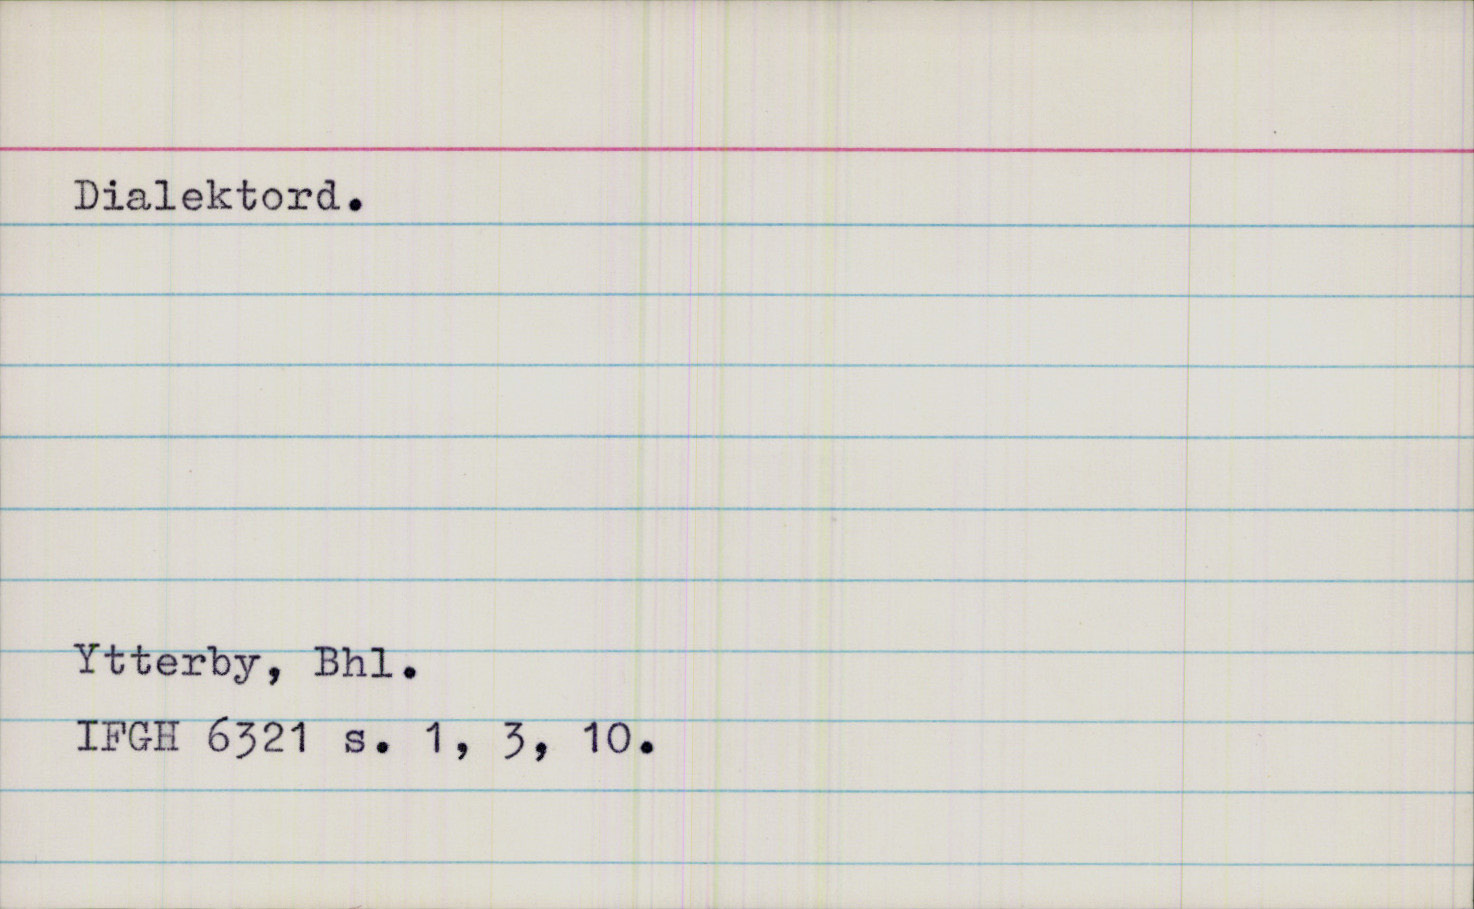 Dialektord.
Ytterby, Bhl.
IFGH 6321 s. 1, 3, 10.